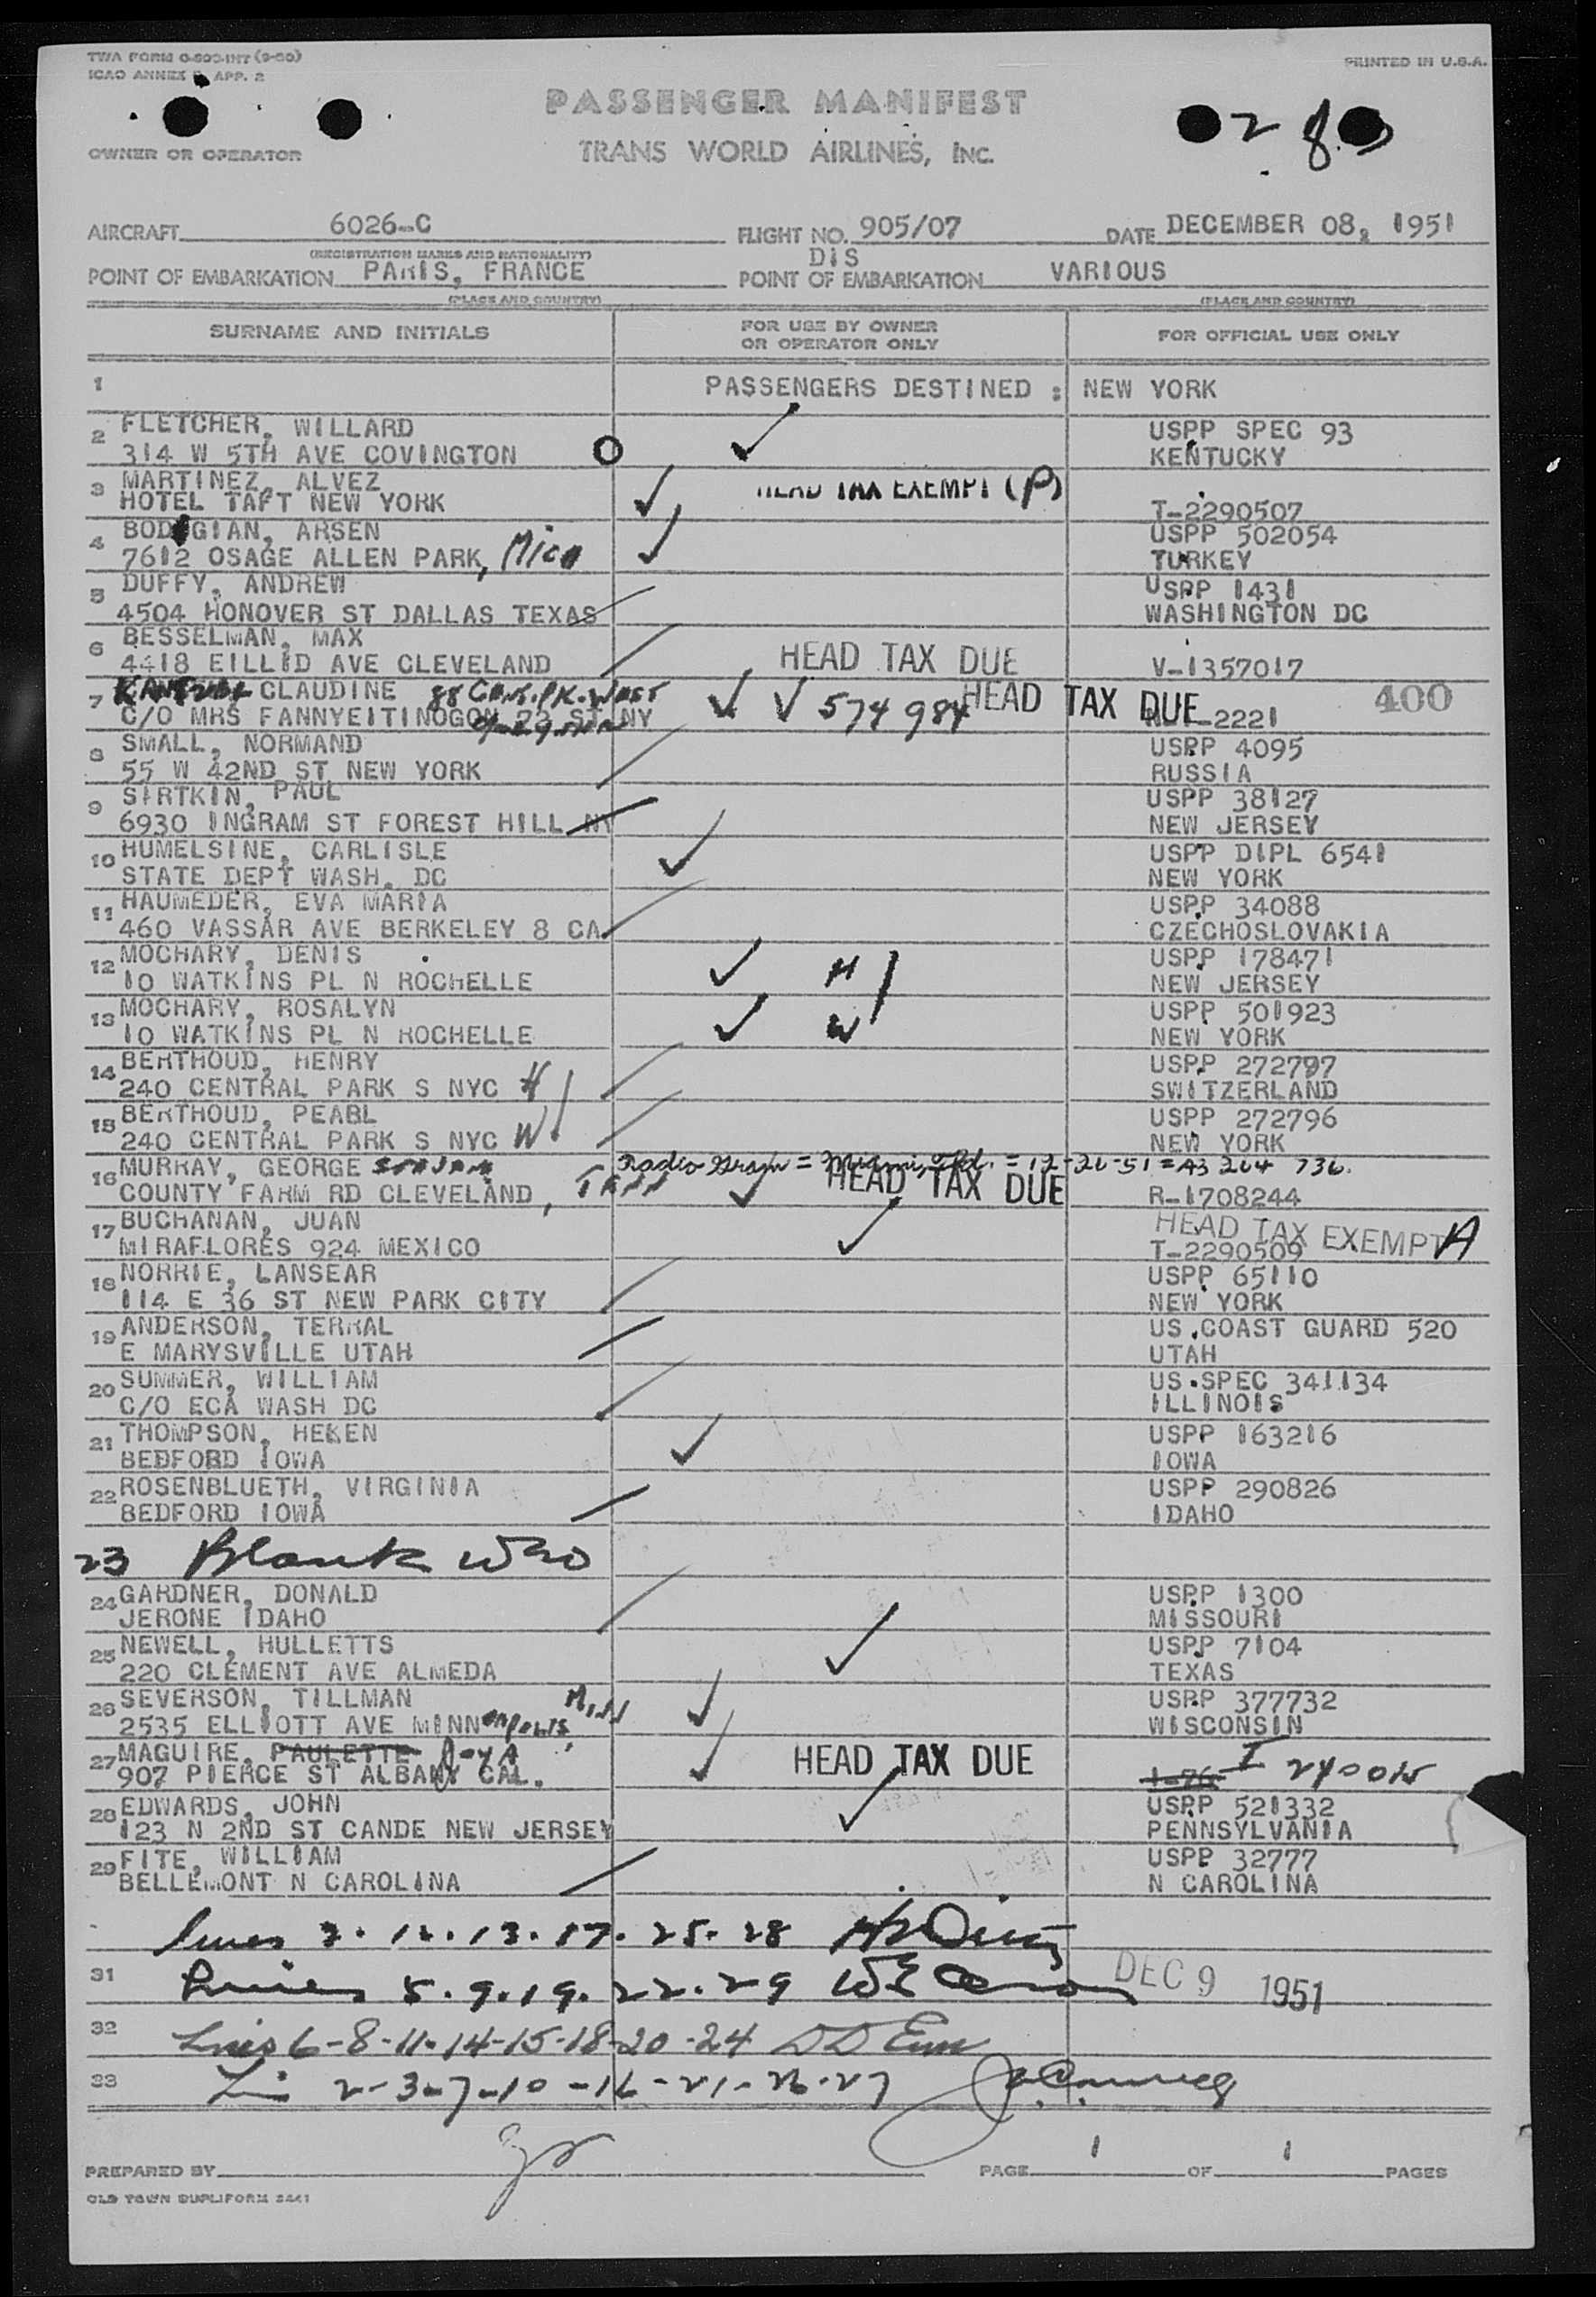 TWA FORM O-800-INT (9-50)
PRINTED IN U.S.A.
ICAO ANNEX APP. 2
PASSENGER MANIFEST
OWNER OR OPERATOR
TRANS WORLD AIRLINES, INC.
AIRCRAFT 6026-C FLIGHT NO. 905/07 DATE DECEMBER 08, 1951
(REGISTRATION MARKS AND NATIONALITY)
DIS
POINT OF EMBARKATION PARIS, FRANCE POINT OF EMBARKATION VARIOUS
(PLACE AND COUNTRY) (PLACE AND COUNTRY)
SURNAME AND INITIALS FOR USE BY OWNER OR OPERATOR ONLY FOR OFFICIAL USE ONLY
1 PASSENGERS DESTINED : NEW YORK
2 FLETCHER, WILLARD USPP SPEC 93
314 W 5TH AVE COVINGTON O KENTUCKY
3 MARTINEZ, ALVEZ HEAD TAX EXEMPT (P)
HOTEL TAFT NEW YORK T-2290507
4 BOD GIAN, ARSEN USPP 502054
7612 OSAGE ALLEN PARK, Mich TURKEY
5 DUFFY, ANDREW USPP 1431
4504 HONOVER ST DALLAS TEXAS WASHINGTON DC
6 BESSELMAN, MAX HEAD TAX DUE
4418 EILLID AVE CLEVELAND V-1357017
7 CLAUDINE 88 Cent. Pk. West V 574984 HEAD TAX DUE 400
C/O MRS FANNYEITINOGON 73 ST NY -2221
8 SMALL, NORMAND USPP 4095
55 W 42ND ST NEW YORK RUSSIA
9 SIRTKIN, PAUL USPP 38127
6930 INGRAM ST FOREST HILL NY NEW JERSEY
10 HUMELSINE, CARLISLE USPP DIPL 6541
STATE DEPT WASH. DC NEW YORK
11 HAUMEDER, EVA MARIA USPP 34088
460 VASSAR AVE BERKELEY 8 CA CZECHOSLOVAKIA
12 MOCHARY, DENIS H USPP 178471
10 WATKINS PL N ROCHELLE NEW JERSEY
13 MOCHARY, ROSALYN W USPP 501923
10 WATKINS PL N ROCHELLE NEW YORK
14 BERTHOUD, HENRY USPP 272797
240 CENTRAL PARK S NYC H SWITZERLAND
15 BERTHOUD, PEABL USPP 272796
240 CENTRAL PARK S NYC W NEW YORK
16 MURRAY, GEORGE Radio Gram = Miami, Fld. = 12-26-51 = A3 264 736.
COUNTY FARM RD CLEVELAND, TENN HEAD TAX DUE R-1708244
17 BUCHANAN, JUAN HEAD TAX EXEMPT A
MIRAFLORES 924 MEXICO T-2290509
18 NORRIE, LANSEAR USPP 65110
114 E 36 ST NEW PARK CITY NEW YORK
19 ANDERSON, TERRAL US COAST GUARD 520
E MARYSVILLE UTAH UTAH
20 SUMMER, WILLIAM US SPEC 341134
C/O ECA WASH DC ILLINOIS
21 THOMPSON, HEKEN USPP 163216
BEDFORD IOWA IOWA
22 ROSENBLUETH, VIRGINIA USPP 290826
BEDFORD IOWA IDAHO
23 Blank
24 GARDNER, DONALD USPP 1300
JERONE IDAHO MISSOURI
25 NEWELL, HULLETTS USPP 7104
220 CLEMENT AVE ALMEDA TEXAS
26 SEVERSON, TILLMAN Minn USPP 377732
2535 ELLIOTT AVE MINNeapolis WISCONSIN
27 MAGUIRE, PAULETTE HEAD TAX DUE
907 PIERCE ST ALBANY CAL. I
28 EDWARDS, JOHN USPP 521332
123 N 2ND ST CANDE NEW JERSEY PENNSYLVANIA
29 FITE, WILLIAM USPP 32777
BELLEMONT N CAROLINA N CAROLINA
lines 12. 13. 17. 25. 28
31 Lines 5. 9. 19. 22. 29 DEC 9 1951
32 Lines 6-8-11-14-15-18-20-24
33 2-3-7-10-16-21-26-27
PREPARED BY PAGE 1 OF 1 PAGES
OLD TOWN DUPLIFORM 2441